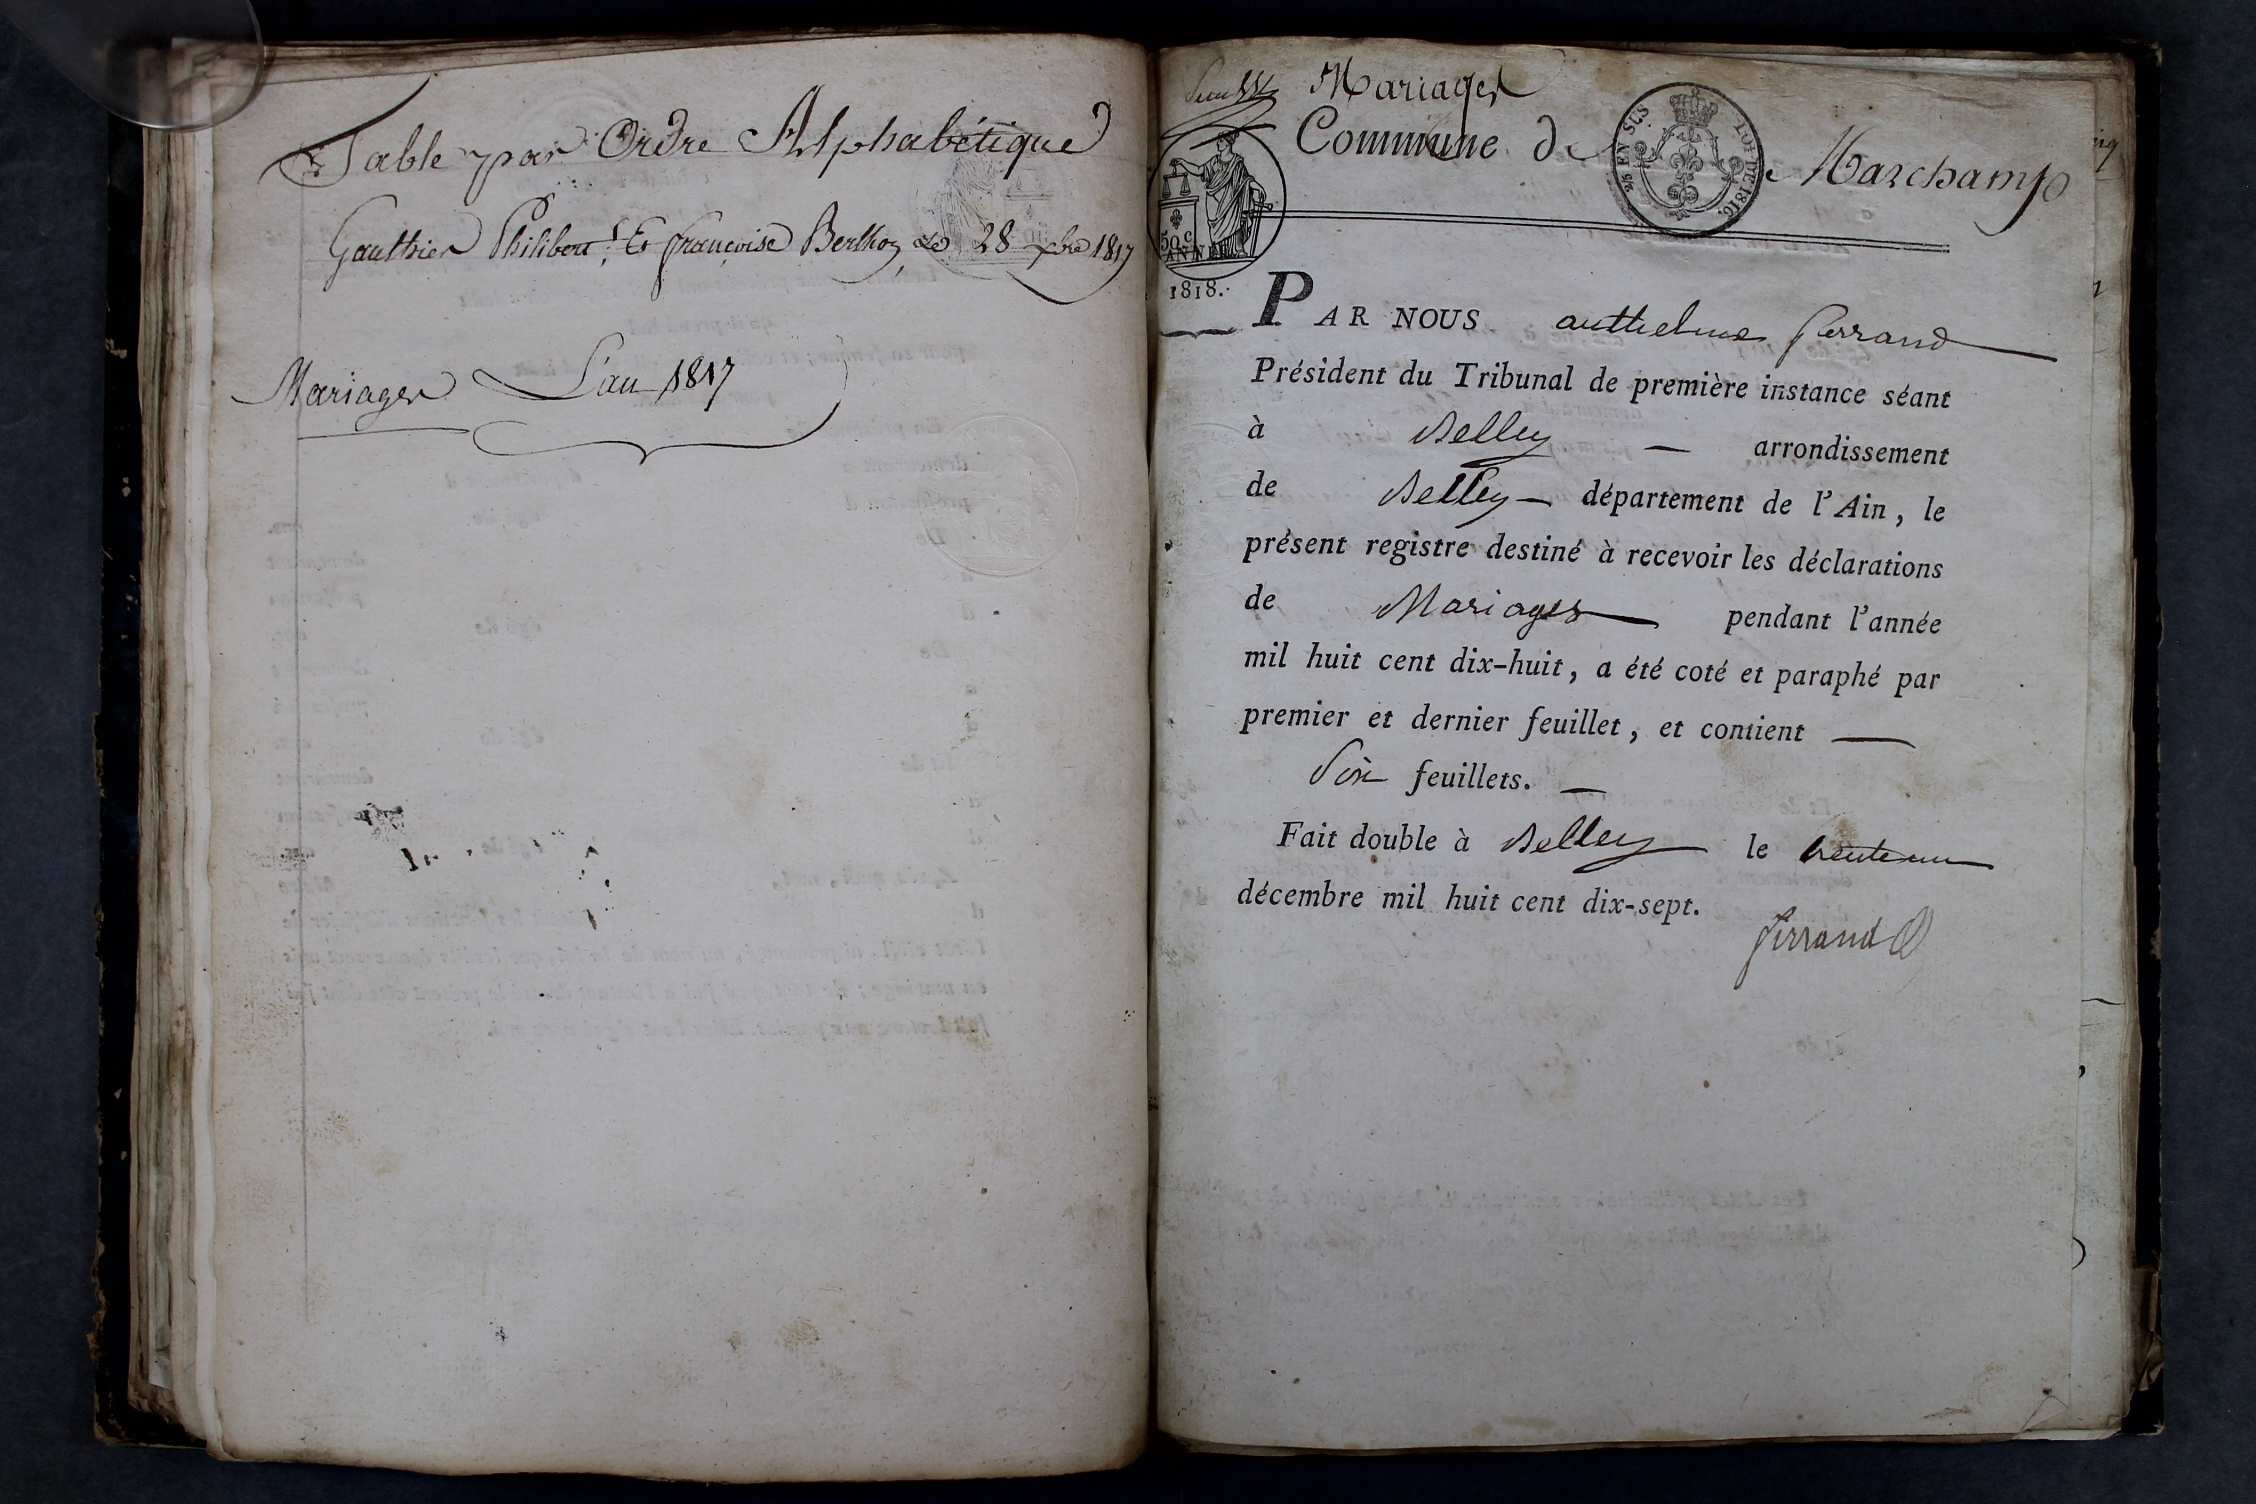 Table par Ordre Alphabétique
Gauthier Philibert. Et françoise Berthoz le 28 xbre 1817
Mariages L'an 1817
Mariages
Commune de Marchamp
25 EN SUS LOI DE 1816.
50 c
ANNÉE
1818.
PAR NOUS anthelme ferrand
Président du Tribunal de première instance séant
à Belley — arrondissement
de Belley — département de l'Ain, le
présent registre destiné à recevoir les déclarations
de Mariages pendant l'année
mil huit cent dix-huit, a été coté et paraphé par
premier et dernier feuillet, et contient —
Six feuillets. —
Fait double à Belley le trente un
décembre mil huit cent dix-sept.
ferrand